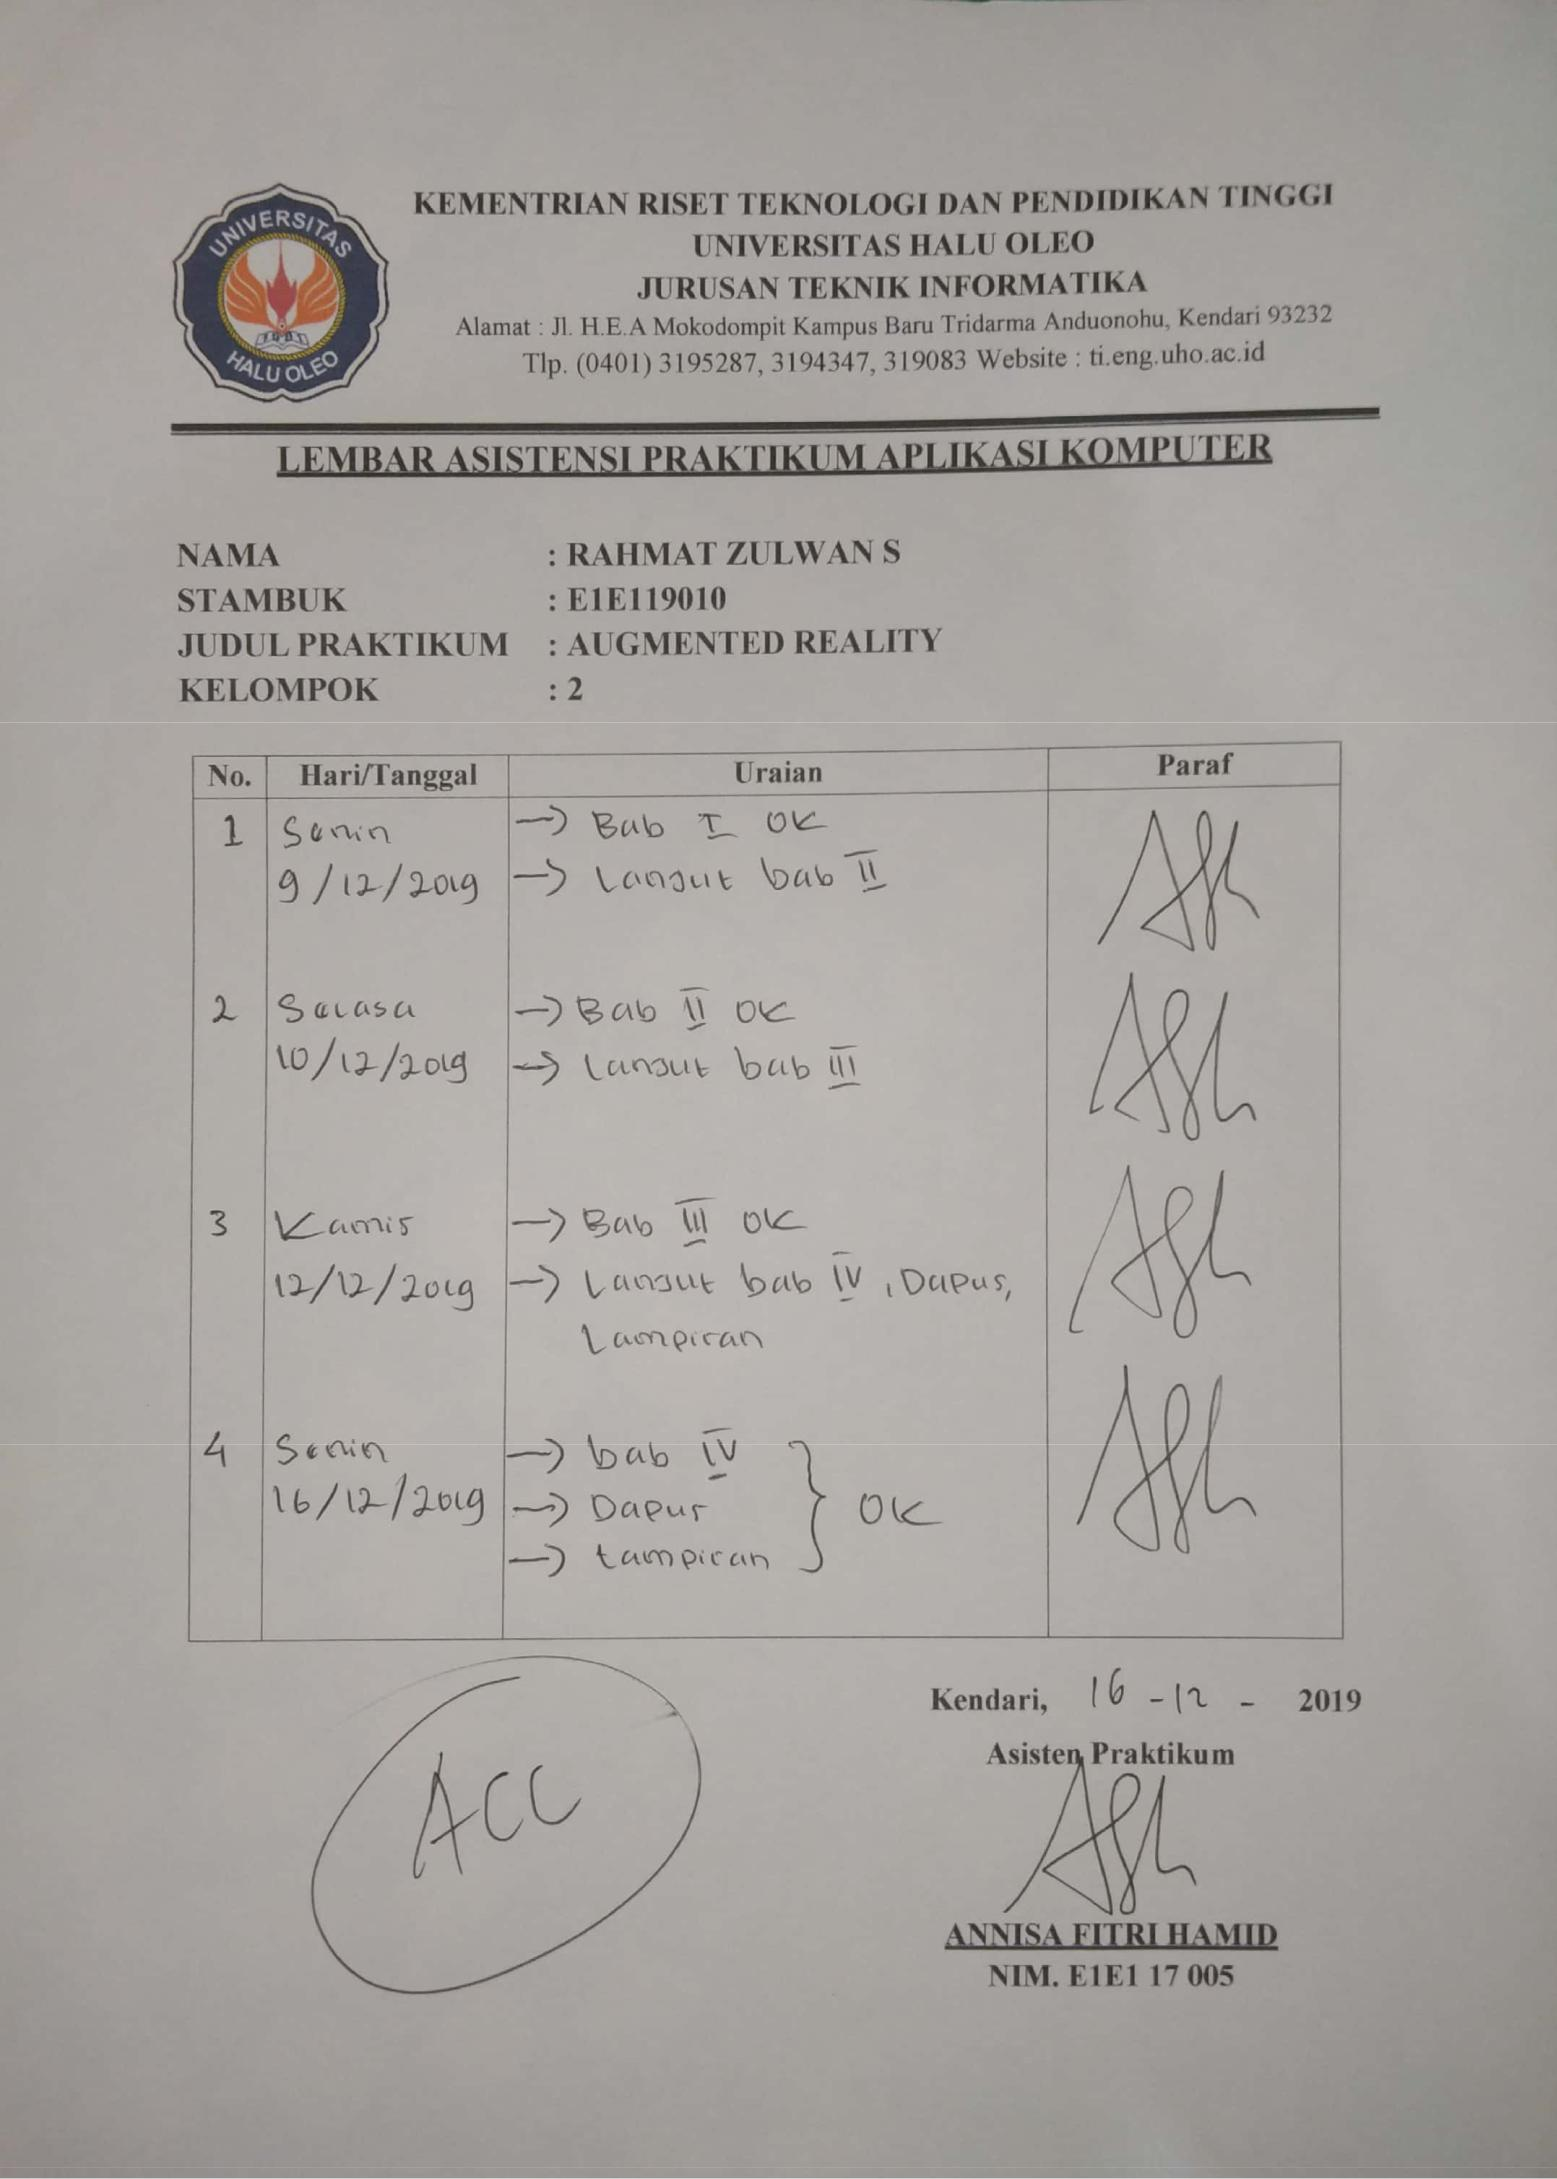 UNIVERSITAS
HALU OLEO
KEMENTRIAN RISET TEKNOLOGI DAN PENDIDIKAN TINGGI
UNIVERSITAS HALU OLEO
JURUSAN TEKNIK INFORMATIKA
Alamat : Jl. H.E.A Mokodompit Kampus Baru Tridarma Anduonohu, Kendari 93232
Tlp. (0401) 3195287, 3194347, 319083 Website : ti.eng.uho.ac.id
LEMBAR ASISTENSI PRAKTIKUM APLIKASI KOMPUTER
NAMA : RAHMAT ZULWAN S
STAMBUK : E1E119010
JUDUL PRAKTIKUM : AUGMENTED REALITY
KELOMPOK : 2
No. Hari/Tanggal Uraian Paraf
1 Senin → Bab I OK
9/12/2019 → Lanjut bab II
2 Selasa → Bab II OK
10/12/2019 → Lanjut bab III
3 Kamis → Bab III OK
12/12/2019 → Lanjut bab IV, Dapus,
Lampiran
4 Senin → bab IV
16/12/2019 → Dapus } OK
→ Lampiran
Kendari, 16 - 12 - 2019
Asisten Praktikum
ACC
ANNISA FITRI HAMID
NIM. E1E1 17 005